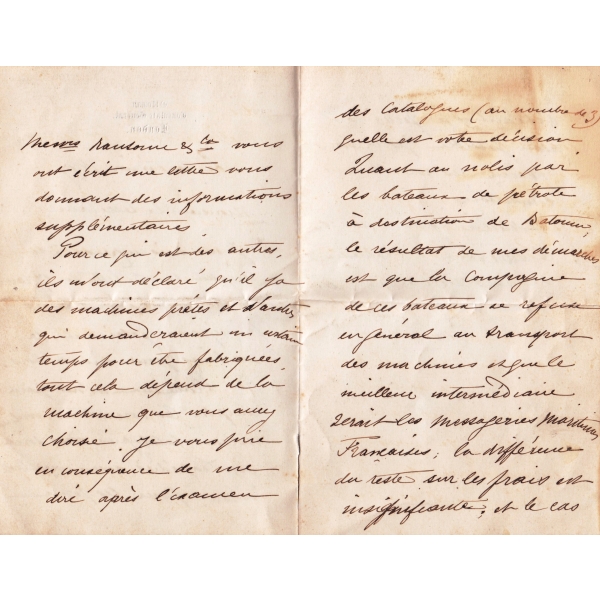 Messrs Ransome & Co vous
ont écrit une lettre vous
donnant des informations
supplémentaires
Pour ce qui est des autres,
ils m'ont déclaré qu'il y a
des machines prêtes et d'autres
qui demanderaient un certain
temps pour être fabriquées,
tout cela dépend de la
machine que vous aurez
choisie. Je vous prie
en conséquence de me
dire après l'examen
des Catalogues (au nombre de 3)
quelle est votre décision
Quant au nolis par
les bateaux de pétrole
à destination de Batoum,
le résultat de mes démarches
est que la Compagnie
de ces bateaux se refuse
en général au transport
des machines et que le
meilleur intermédiaire
serait les Messageries Maritimes
Françaises; la différence
du reste sur les frais est
insignifiante; et le cas